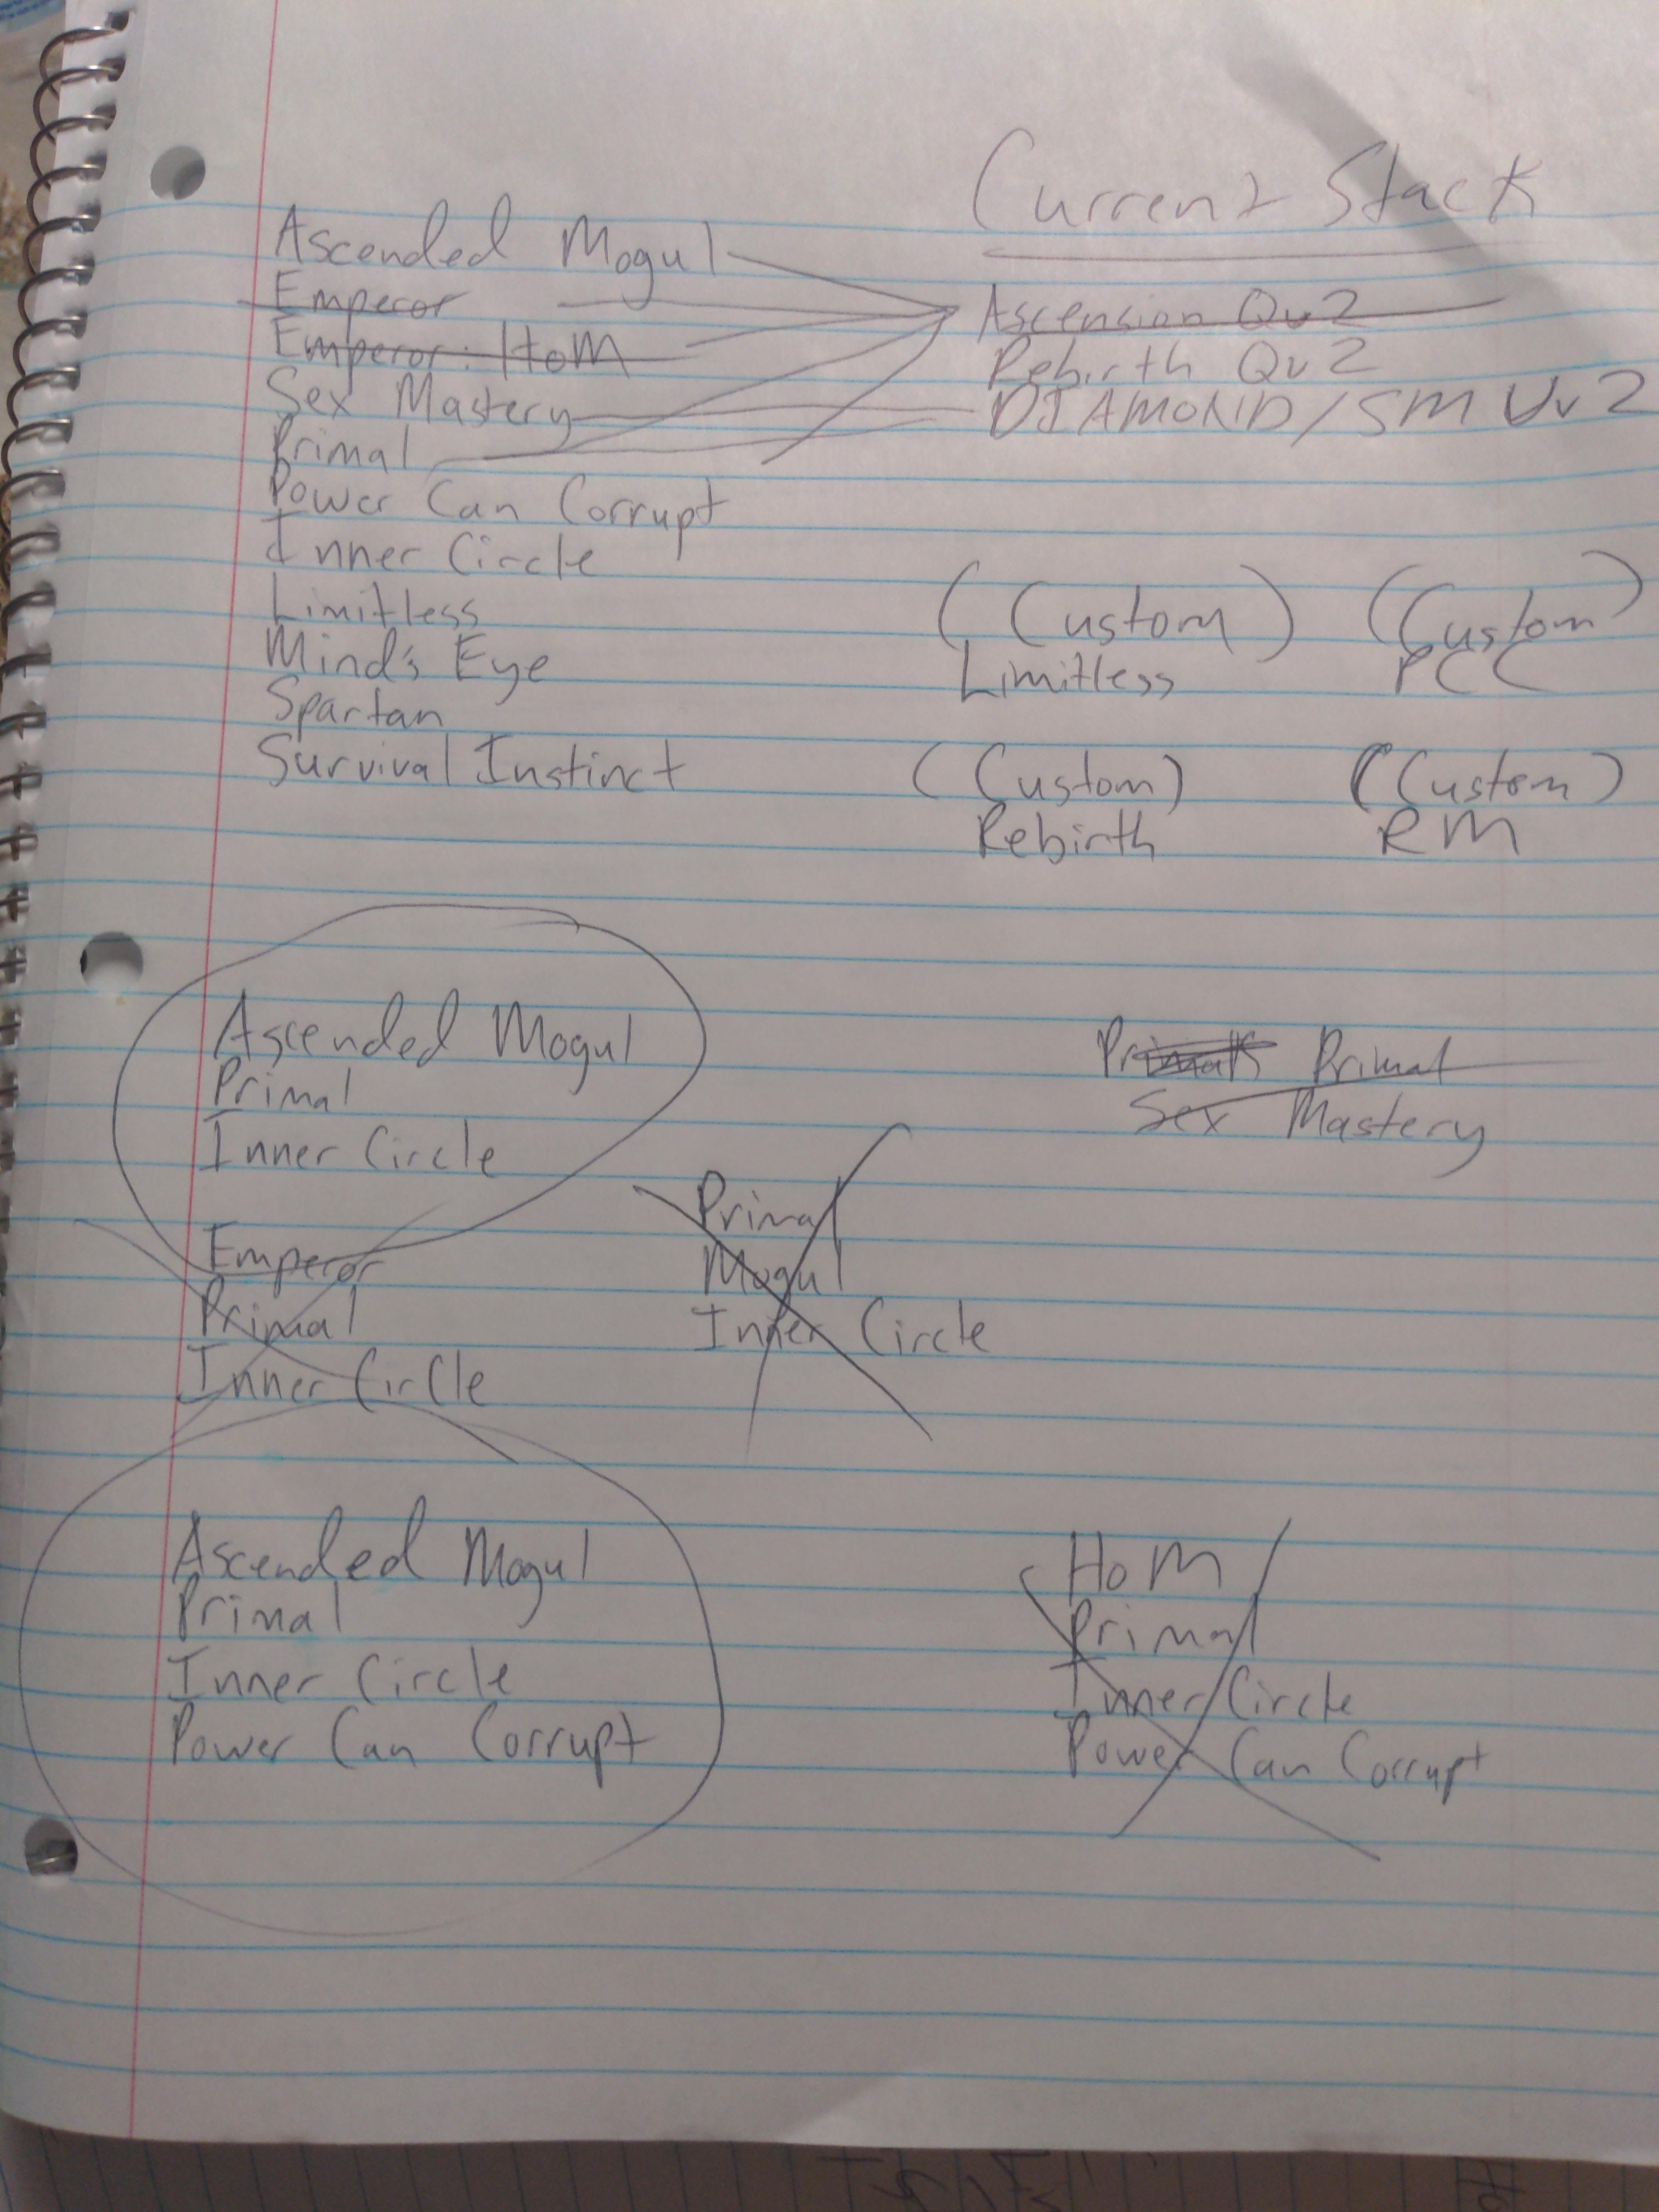 Current Stack
Ascended Mogul
Emperor
Emperor: HoM
Sex Mastery
Primal
Power Can Corrupt
Inner Circle
Limitless
Mind's Eye
Spartan
Survival Instinct
Ascension Qv2
Rebirth Qv2
DIAMOND/SM Uv2
(Custom)
Limitless
(Custom)
PCC
(Custom)
Rebirth
(Custom)
RM
Ascended Mogul
Primal
Inner Circle
Primal
Sex Mastery
Emperor
Primal
Inner Circle
Primal
Mogul
Inner Circle
Ascended Mogul
Primal
Inner Circle
Power Can Corrupt
HoM
Primal
Inner Circle
Power Can Corrupt